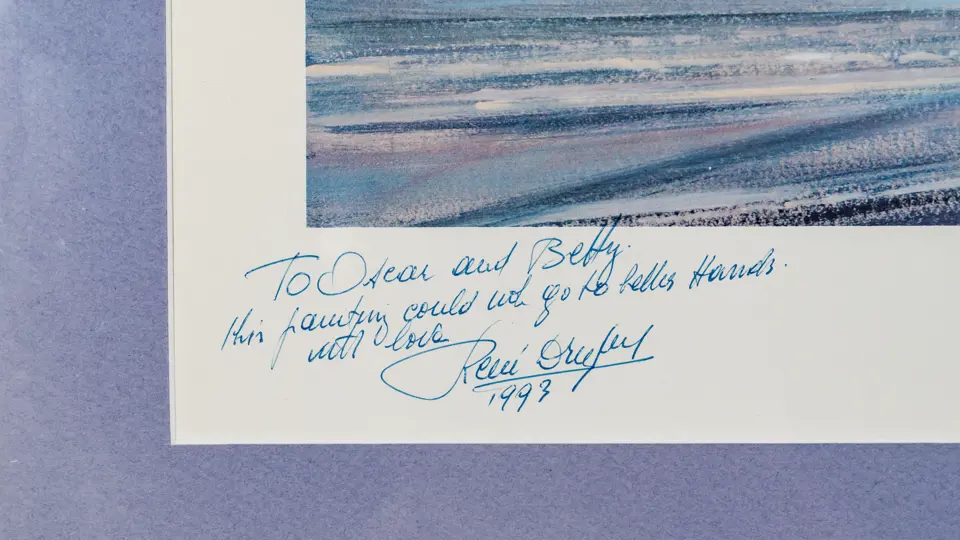 To Oscar and Betty.
this painting could not go to better Hands.
with love
René
1993